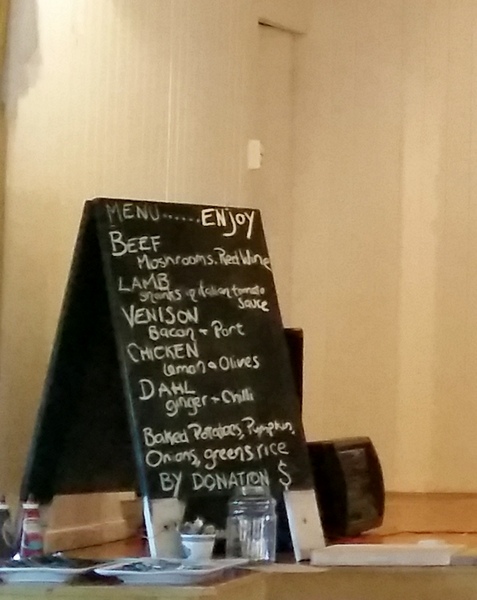 MENU...... ENJOY
BEEF
Mushrooms, Red Wine
LAMB
Shanks in Italian tomato
sauce
VENISON
Bacon + Port
CHICKEN
Lemon & Olives
DAHL
ginger + Chilli
Baked Potatoes, Pumpkin,
Onions, greens rice
BY DONATION $